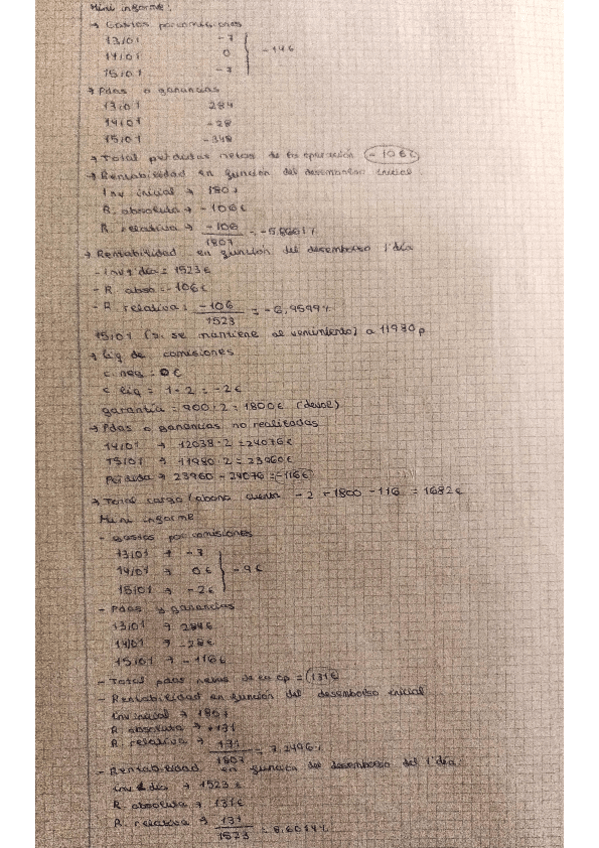 Mini informe:
→ Gastos por comisiones
13/01 -7
14/01 0 } -14€
15/01 -7
→ Pdas o ganancias
13/01 284
14/01 -28
15/01 -348
→ Total perdidas netas de la operación -106€
→ Rentabilidad en función del desembolso inicial
Inv inicial → 1807
R. absoluta → -106€
R. relativa → -106 / 1807 = -5,8661%
→ Rentabilidad en función del desembolso 1º día
- Inv 1º día = 1523€
- R. abso = -106€
- R. relativa = -106 / 1523 = -6,9599%
15/01 (si se mantiene al vencimiento) a 11980 p
→ Liq de comisiones
c. neg = 0€
c liq = 1·2 = -2€
garantía = 900·2 = 1800€ (devol)
→ Pdas o ganancias no realizadas
14/01 → 12038·2 = 24076€
15/01 → 11980·2 = 23960€
Pérdida → 23960 - 24076 = -116€
→ Total cargo/abono cuenta -2 + 1800 - 116 = 1682€
Mini informe
- Gastos por comisiones
13/01 → -7
14/01 → 0€ } -9€
15/01 → -2€
- Pdas o ganancias
13/01 → 284€
14/01 → -28€
15/01 → -116€
- Total pdas netas de la op = 131€
- Rentabilidad en función del desembolso inicial
Inv inicial → 1807
R. absoluta → +131
R. relativa → 131 / 1807 = 7,2496%
- Rentabilidad en función del desembolso del 1º día
inv 1 día → 1523€
R. absoluta → 131€
R. relativa → 131 / 1523 = 8,6014%